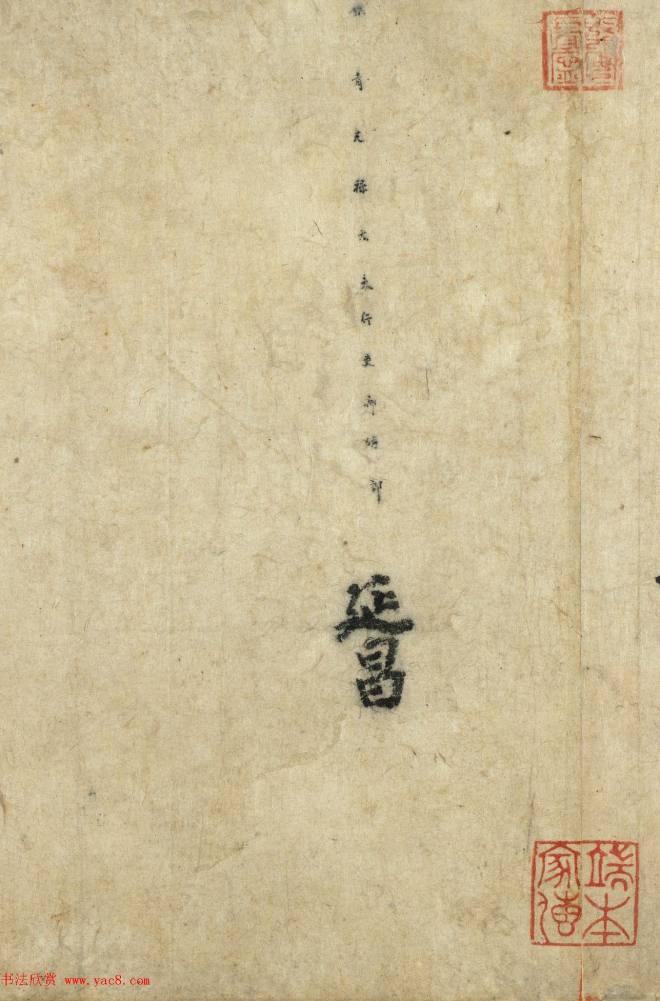 端本
家傳
銀青光祿大夫行吏部侍郎
延昌
书法欣赏 www.yac8.com